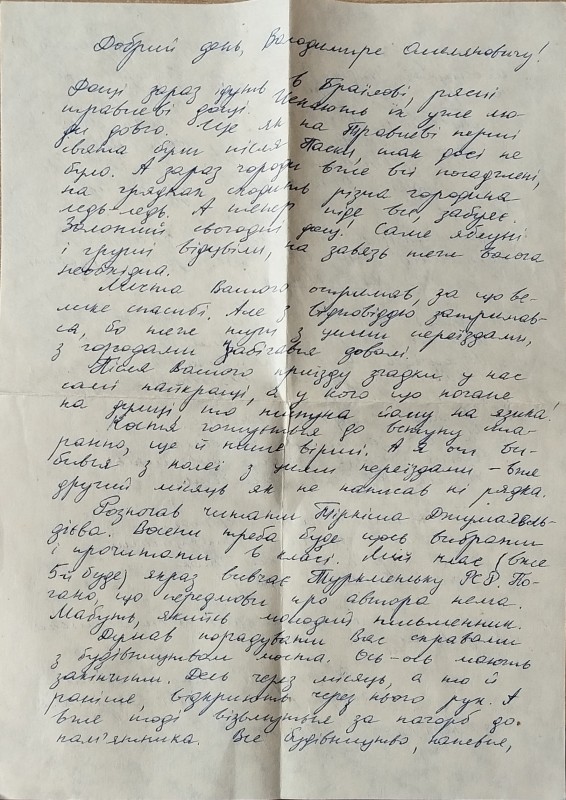 Добрий день, Володимире Омеляновичу!
Дощі зараз ідуть в Браїлові, рясні
травневі дощі. Чекають їх уже лю-
ди довго. Ще як на Травневі перші
свята були після Паски, так досі не
було. А зараз городи вже всі посаджені,
на грядках сходить різна городина
ледь-ледь. А тепер піде все, забує.
Золотий сьогодні дощ! Саме яблуні
і груші відцвіли, на завязь теж волога
необхідна.
Листа Вашого отримав, за що ве-
лике спасибі. Але з відповіддю затримав-
ся, бо теж тут з цими переїздами,
з городами забігався доволі.
Після Вашого приїзду згадки у нас
самі найкращі, а у кого що погане
на думці то типуна йому на язика!
Костя готується до вступу ста-
ранно, ще й пише вірші. А я ось ви-
бився з колеї з цими переїздами – вже
другий місяць як не написав ні рядка.
Розпочав читати Тіркіша Джумагель-
дієва. Восени треба буде щось вибрати
і прочитати в класі. Мій клас (вже
5-й буде) якраз вивчає Туркменську РСР. По-
гано, що передмови про автора нема.
Мабуть, якийсь молодий письменник.
Думав порадувати Вас справами
з будівництвом моста. Ось-ось мають
закінчити. Десь через місяць, а то й
раніше, відкриють через нього рух. А
вже тоді візьмуться за нагорб до
пам'ятника. Все будівництво, напевне,